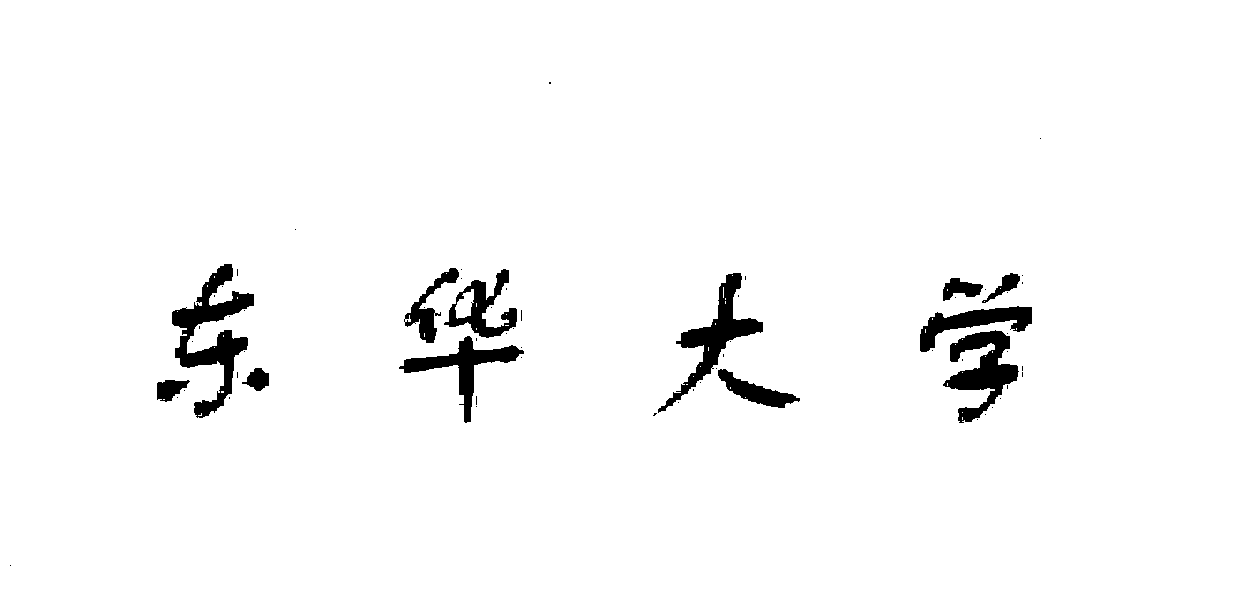 东华大学